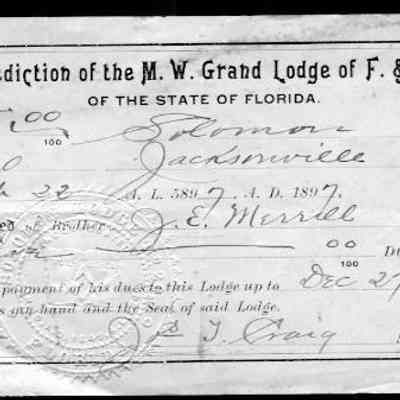 diction of the M. W. Grand Lodge of F. &
OF THE STATE OF FLORIDA.
00
100 Solomon
Jacksonville
22 A. L. 5897, A. D. 1897,
ed of Brother J. E. Merrill
00
100
payment of his dues to this Lodge up to Dec 27
s my hand and the Seal of said Lodge.
T. Craig